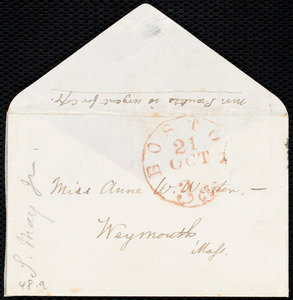 Mr. Parker is urgent for Copy.
BOSTON
21
OCT
Miss Anne W. Weston.
Weymouth
Mass.
S. May Jr.
48.a